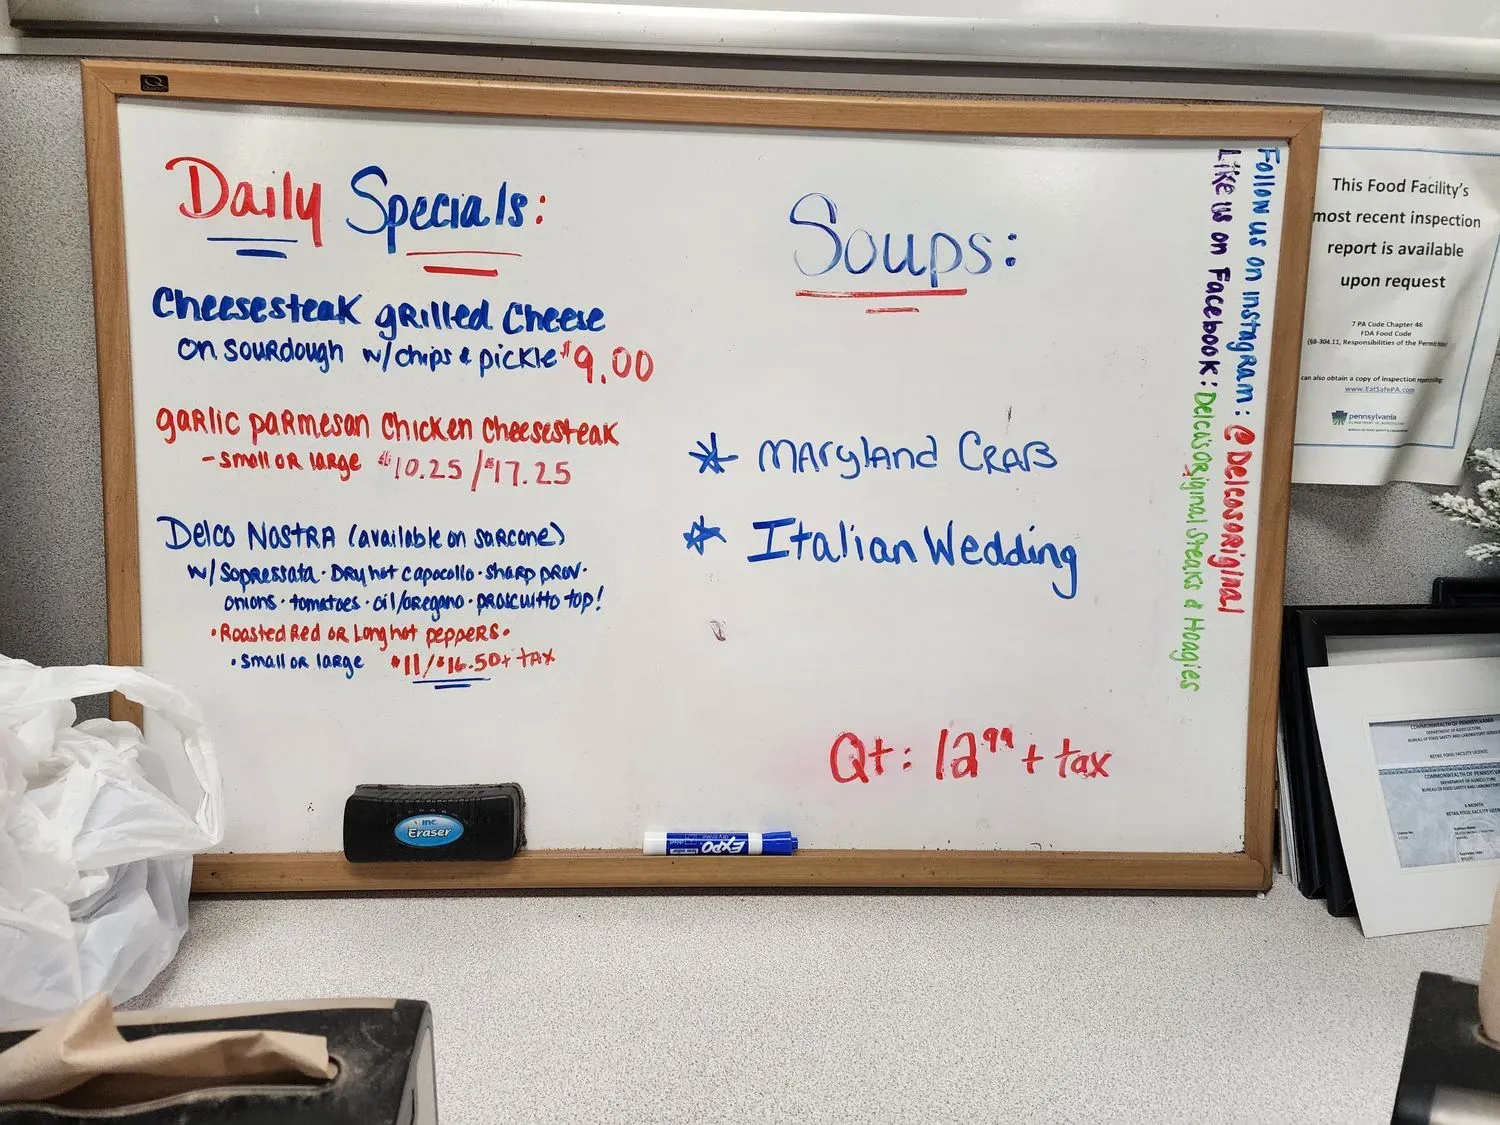 Daily Specials:
Cheesesteak grilled cheese
on sourdough w/chips & pickle $9.00
garlic parmesan chicken cheesesteak
- small or large $10.25/$17.25
Delco Nostra (available on sarcone)
w/ Sopressata · Dry hot capocollo · sharp prov ·
onions · tomatoes · oil/oregano · proscuitto top!
· Roasted Red or Long hot peppers ·
· small or large $11/$16.50 + tax
Soups:
* Maryland Crab
* Italian Wedding
Qt: 12.99 + tax
Follow us on instagram: @Delcosoriginal
Like us on Facebook: Delco's Original Steaks & Hoagies
inc.
Eraser
EXPO
dry erase
low odor
This Food Facility's
most recent inspection
report is available
upon request
7 PA Code Chapter 46
FDA Food Code
Responsibilities of the Permit
can also obtain a copy of inspection
www.EatSafePA.com
pennsylvania
DEPARTMENT OF AGRICULTURE
COMMONWEALTH OF PENNSYLVANIA
DEPARTMENT OF AGRICULTURE
BUREAU OF FOOD SAFETY AND LABORATORY
RETAIL FOOD FACILITY LICENSE
COMMONWEALTH OF PENNSYLVANIA
DEPARTMENT OF AGRICULTURE
BUREAU OF FOOD SAFETY AND LABORATORY
6 MONTH
RETAIL FOOD FACILITY